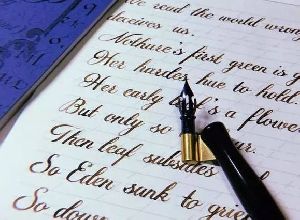 We read the world wrong
deceives us.
Nature's first green is g
Her hardest hue to hold.
Her early 's a flower
But only so ur.
Then leaf subsides
So Eden sank to grie
So dow